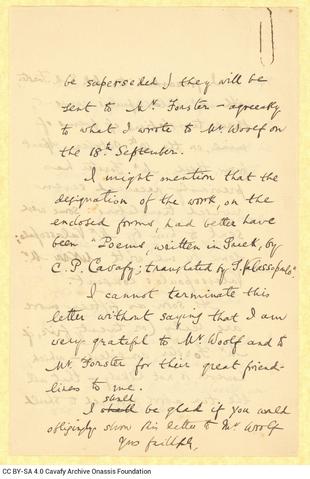 be superseded] they will be
sent to Mr. Forster – agreeably
to what I wrote to Mr. Woolf on
the 18th September.
I might mention that the
designation of the work, on the
enclosed forms, had better have
been "Poems, written in Greek, by
C. P. Cavafy; translated by G. Valassopoulo"
I cannot terminate this
letter without saying that I am
very grateful to Mr Woolf and to
Mr. Forster for their great friend-
liness to me.
I shall be glad if you would
obligingly show this letter to Mr Woolf
Yrs faithfly,
CC BY-SA 4.0 Cavafy Archive Onassis Foundation